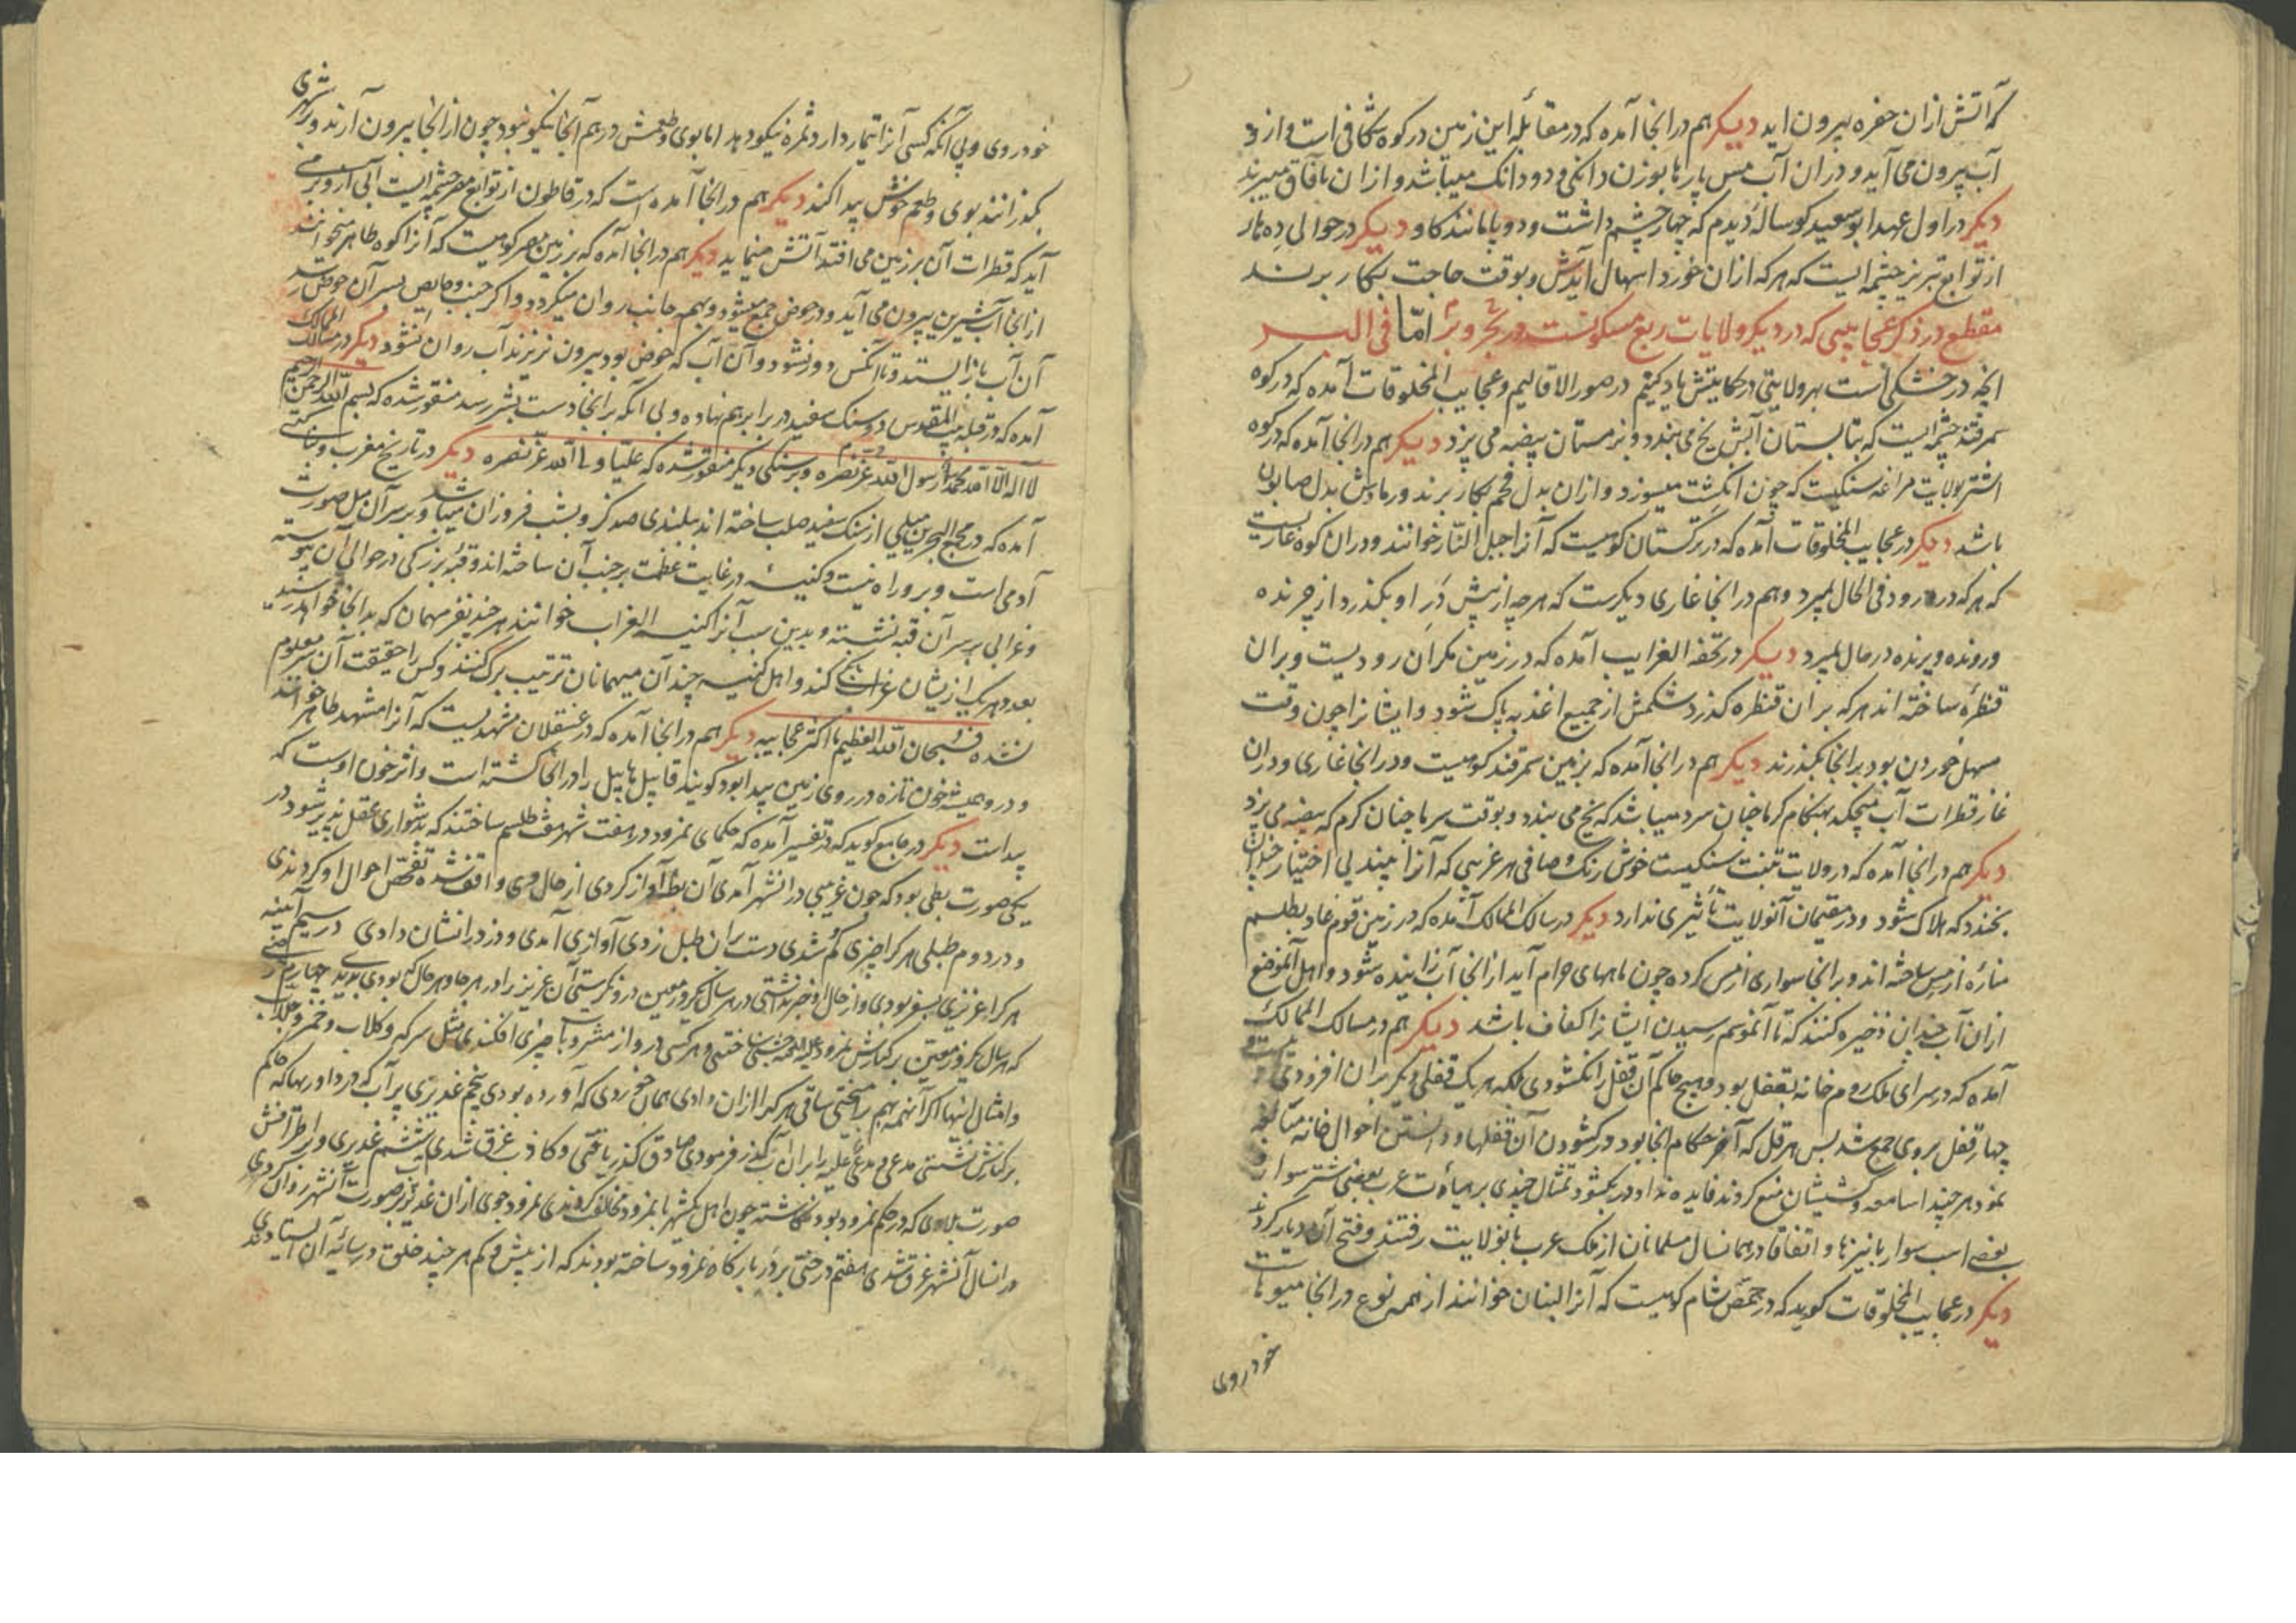 که آتش ازان حفره بیرون اید دیکر هم در انجا آمده که در مقابلهٔ این زمین در کوه شکافی است و ازو
آب بیرون می آید و دران آب مس پارها بوزن دانکی و دو دانک میباشد و ازان بآفاق میبرند
دیکر در اول عهد ابو سعید کوساله دیدم که چهار چشم داشت و دو پا مانند کاو دیکر در حوالی ده
از توابع تبریز چشمه ایست که هر که ازان خورد اسهال آیدش و بوقت حاجت بکار برند
مقطع در ذکر عجایبی که در دیکر ولایات ربع مسکونست در بحر و بر امّا فی البر
انچه در خشکی است بهر ولایتی در حکایتش یاد کنیم در صور الاقالیم و عجایب المخلوقات آمده که در کوه
سمرقند چشمه ایست که بتابستان آبش یخ می بندد و بزمستان بیضه می پزد دیکر هم در انجا آمده که در کوه
اشتر بولایت مراغه سنکیست که چون انکشت میسوزد و ازان بدل فحم بکار برند و رمادش بدل صابون
باشد دیکر در عجایب المخلوقات آمده که در ترکستان کوهیست که آنرا جبل النار خوانند و دران کوه غاریست
که هر که در رود فی الحال بمیرد و هم در انجا غاری دیکرست که هر چه از پیش در او بکذرد از چرنده
و رونده و پرنده در حال بمیرد دیکر در تحفه الغرایب آمده که در زمین مکران رودیست و بران
قنطرهٔ ساخته اند هر که بر ان قنطره کذرد شکمش از جمیع اغذیه پاک شود و ایشانرا چون وقت
مسهل خوردن بود بر انجا بکذرند دیکر هم در انجا آمده که بزمین سمرقند کوهیست و در انجا غاری و دران
غار قطرات آب میچکد بهنکام کرما چنان سرد میباشد که یخ می بندد و بوقت سرما چنان کرم که بیضه می پزد
دیکر هم در انجا آمده که در ولایت تبت سنکیست خوش رنک و صافی هر غریبی که آنرا بیند بی اختیار چندان
بخندد که هلاک شود و در مقیمان آنولایت تأثیری ندارد دیکر در مسالک الممالک آمده که در زمین قوم عاد بطلسم
مناره از مس ساخته اند و بر انجا سواری از مس کرده چون ماههای حرام آید از انجا آب زاینده شود و اهل آنموضع
ازان آب چندان ذخیره کنند که تا آنموسم رسیدن ایشانرا کفاف باشد دیکر هم در مسالک الممالک
آمده که در سرای ملک روم خانه بقفل بود و هیچ حاکم آن قفل را نکشودی بلکه هر یک قفلی دیکر بران افزودی
چهار قفل بروی جمع شد پس هرقل که آخر حکام انجا بود در کشودن آن قفلها و دانستن احوال خانه مبالغه
نمود هر چند اساقفه و کشیشان منع کردند فایده نداد در بکشود تمثال چندی بر هیأت عرب بعضی شتر سوار و
بعضی اسب سوار با نیزها و اتفاقا در همانسال مسلمانان از ملک عرب بانولایت رفتند و فتح آن دیار کردند
دیکر در عجایب المخلوقات کوید که در حمص شام کوهیست که آنرا لبنان خوانند از همه نوع در انجا میوهاست
خودروی
خودروی و بی آنکه کسی آنرا تیمار دارد ثمره نیکو دهد اما بوی و طعمش در هم آنجا نیکو نبود چون از انجا بیرون آرند و بر شهری
بکذرانند بوی و طعم خوش پیدا کند دیکر هم در انجا آمده است که در قاطون از توابع مصر چشمه ایست
آید که قطرات آن بر زمین می افتد آتش مینماید دیکر هم در انجا آمده که بزمین مصر کوهیست که آنرا کوه طاهر میخوانند
از انجا آب شیرین بیرون می آید و در حوض جمع میشود و بهمه جانب روان میکردد و اکر جنب و حایص بسر آن حوض رسد
آن آب باز ایستد و تا آنکس دور نشود و آن آب که در حوض بود بیرون نریزند آب روان نشود دیکر در مسالک الممالک
آمده که در قبله بیت المقدس دو سنک سفید در برابر هم نهاده و بی آنکه بر انجا دست بشر رسد منقور شده که بسم الله الرحمن الرحیم
لا اله الا الله محمد رسول الله عز نصره و بر سنکی دیکر منقور شده که علیّا ولی الله عز نصره دیکر در تاریخ مغرب
آمده که در مجمع البحرین میلی از سنک سفید صلب ساخته اند ببلندی صد کز و بشب فروزان میباشد و بر سر آن میل صورت
آدمی است و برو راه نیست و کنیسهٔ در غایت عظمت بر جنب آن ساخته اند و قبّه بزرکی در حوالی آن پیوسته
و غرابی بر سر آن قبه نشسته و بدین سبب آنرا کنیسه الغراب خوانند هر چند نفر مهمان که بدانجا خواهد رسید
بعدد هر یک ازیشان غراب بانک کند و اهل کنیسه چند آن میهمانان ترتیب برک کنند و کس را حقیقت آن سرّ معلوم
نشده فسبحان الله العظیم ما اکثر عجایبه دیکر هم در انجا آمده که در عسقلان مشهدیست که آنرا مشهد طاهر خوانند
و درو همیشه خون تازه در روی زمین پیدا بود کویند قابیل هابیل را در انجا کشته است و اثر خون اوست که
پیداست دیکر در جامع کوید که در تفسیر آمده که حکمای نمرود در هفت شهر هفت طلسم ساختند که بدشواری عقل پذیر شود در
یکی صورت بطی بود که چون غریبی در انشهر آمدی آن بط آواز کردی از حال وی واقف شده تفحص احوال او کردندی
و در دوم طبلی هر کرا چیزی کم شدی دست بران طبل زدی آوازی آمدی و دزد را نشان دادی در سیم آیینه
هر کرا عزیزی بسفر بودی و از حال او خبر نداشتی در هر سال یکروز معین درو نکریستی آن عزیز را در هر جا و هر حال که بودی بدیدی چهارم
که هر سال یکروز معین بر کنارش نمرود علیه اللعنه جشنی ساختی و هر کس درو از مشروبات چیزی افکندی مثل سرکه و کلاب و خمر و جلاب
و امثال اینها اکر آنهمه بهم برآمیختی ساقی هر کرا ازان دادی همان خوردی که آورده بودی پنجم غدیری پر آب که در داوریها که حاکم
بر کنارش نشستی مدعی و مدعی علیه را بران آب کذر فرمودی صادق کذر یافتی و کاذب غرق شدی ششم غدیری و بر اطرافش
صورت بلادی که در حکم نمرود بود نکاشته چون اهل یکشهر با نمرود مخالف کردندی نمرود جوی ازان غدیر بر صورت آنشهر روان کردی
در انسال آنشهر غرق شدی هفتم درختی بر در بارکاه نمرود ساخته بودند که از بیش و کم هر چند خلق در سایهٔ آن ایستادی